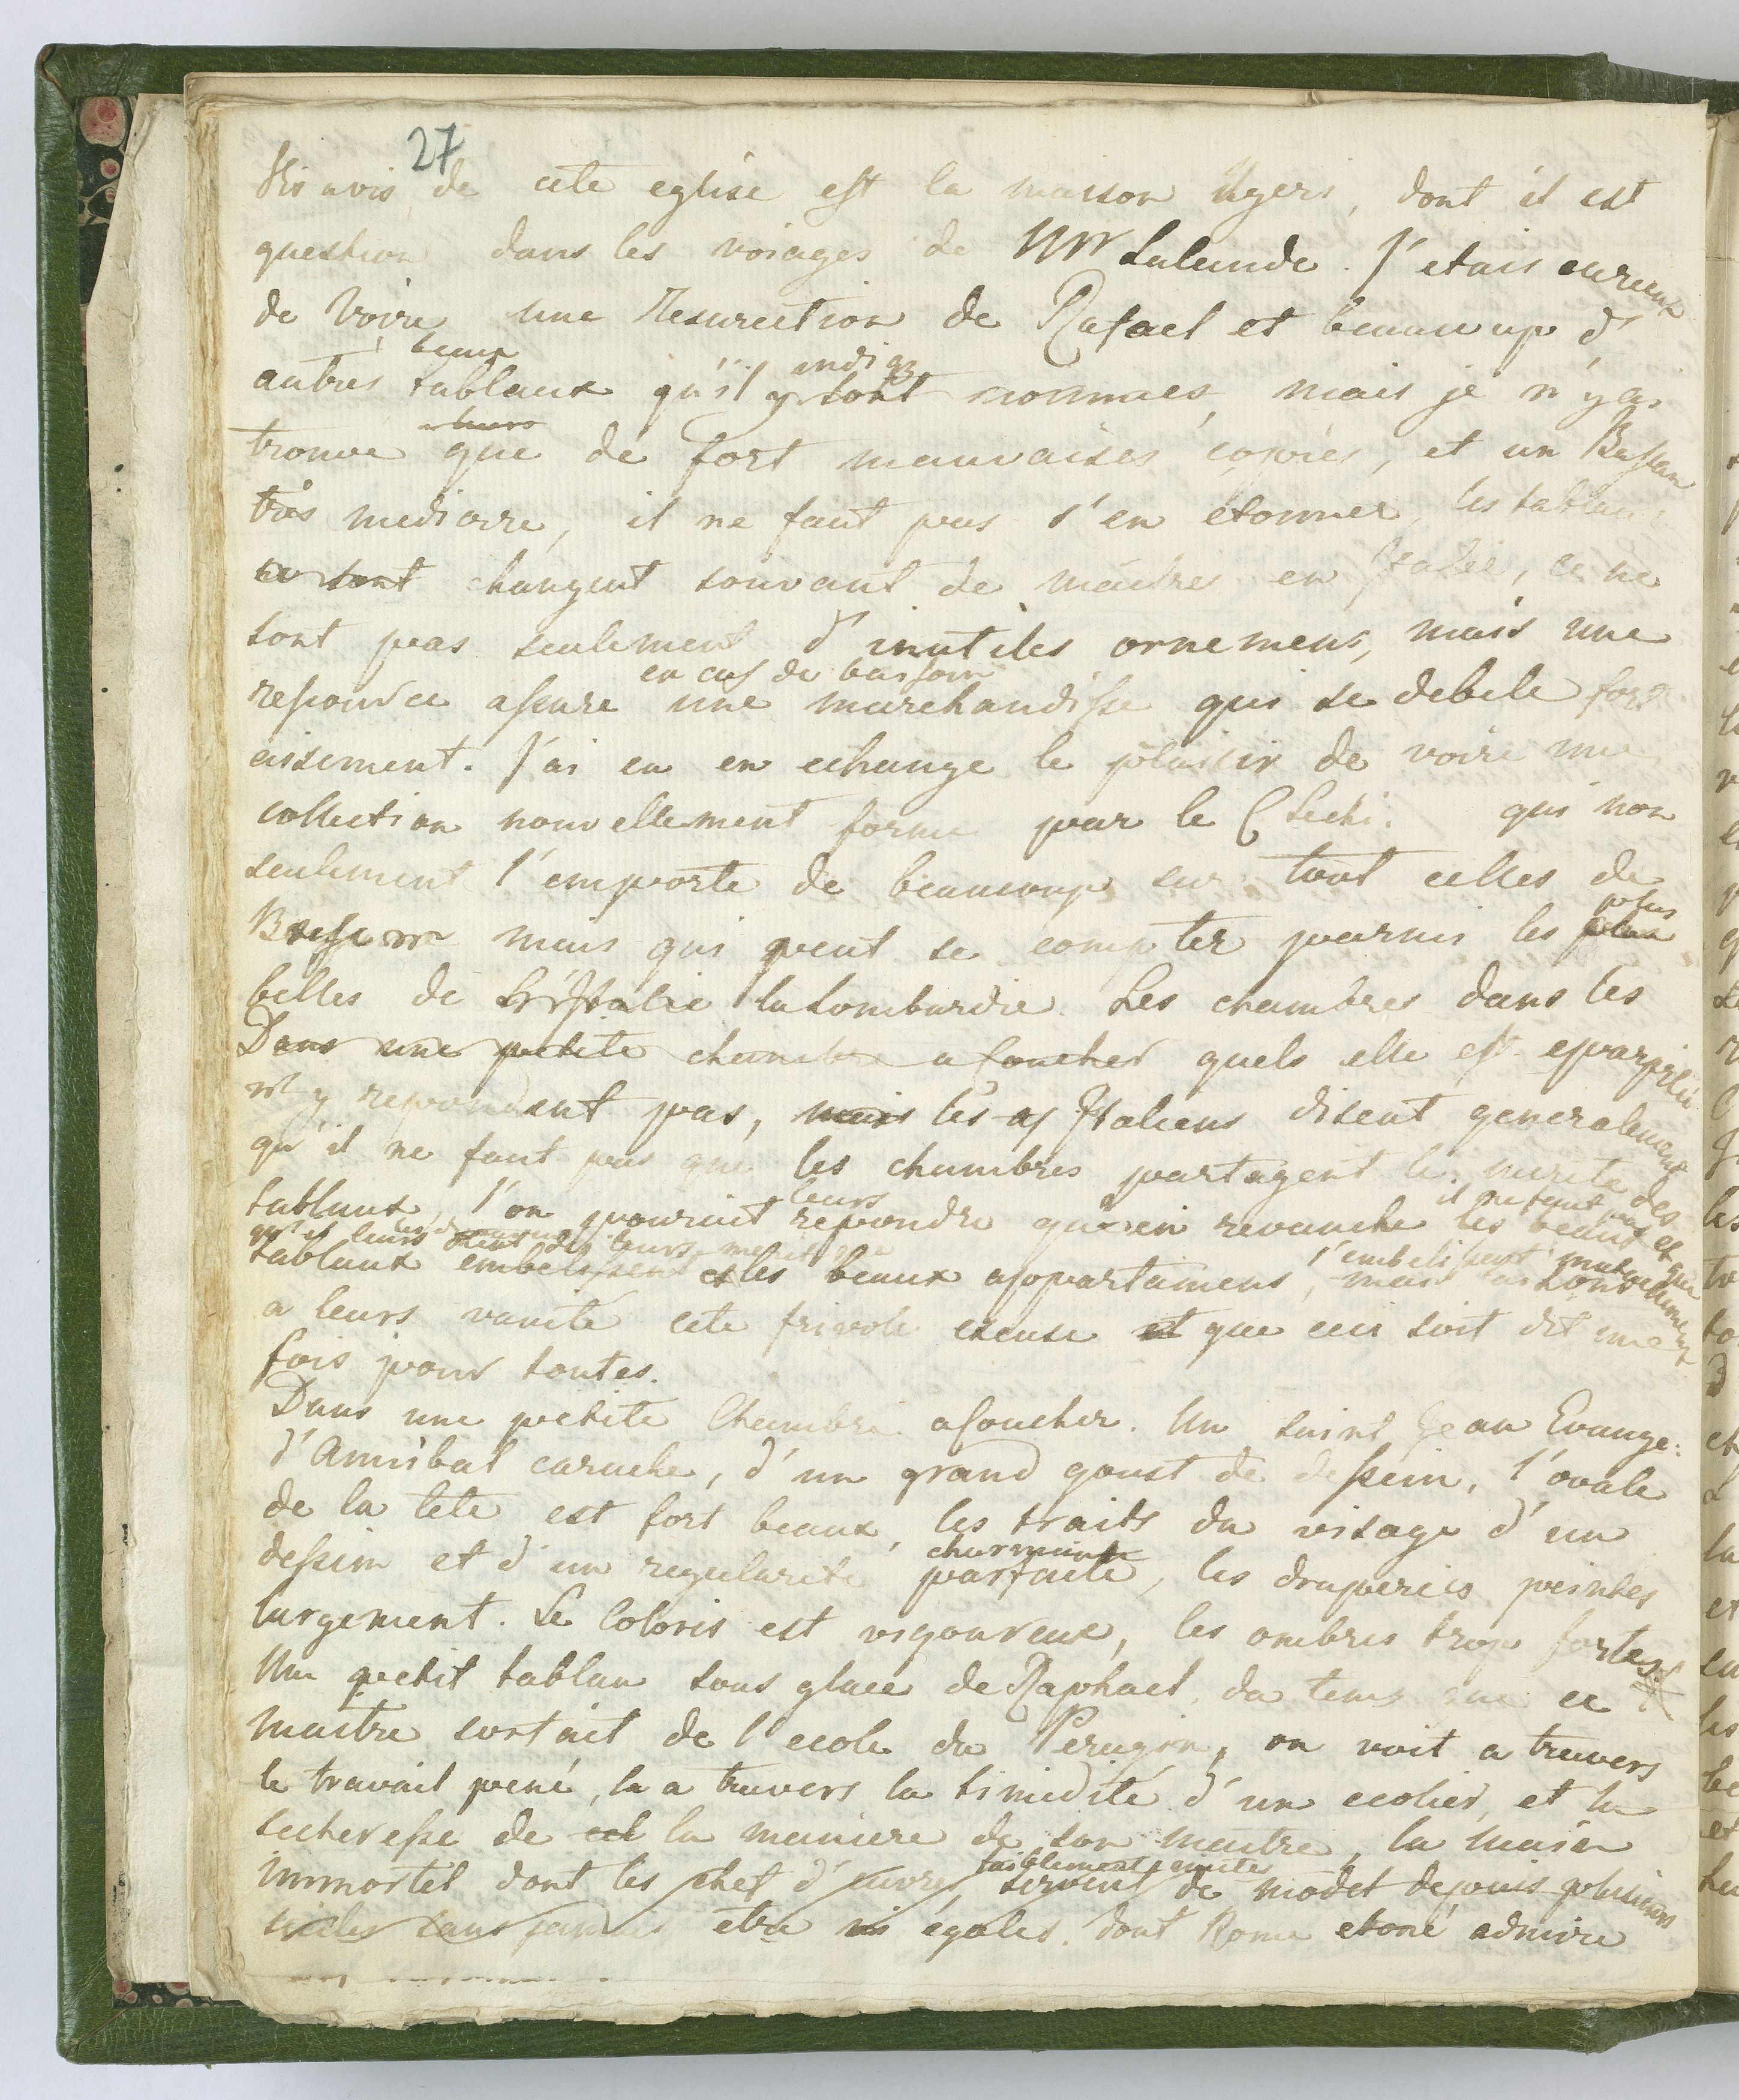 27
Vis avis de cete eglise est la maison Ugeri, dont il est
question dans les voiages de Mr Lalande. J'etais curieux
de Voire une Resurection de Rafael et beaucoup d'
beaux
indiq
autres tablaux qu'il y sont nommés, mais je n'y ai
trouve que de fort mauvaises copies, et un Bassan
très mediocre, il ne faut pas s'en étonner, les tablaux
ce sont changent souvant de maitres en Italie, ce ne
sont pas seulement d'inutiles ornemens, mais une
en cas de besoin
ressource assure une marchandisse qui se debite fort
aisement. J'ai eu en echange le plaisir de voire une
collection nouvellement forme par le C Lechi. qui non
seulement l'emporte de beaucoup sur tout celles de
plus
Bresse mais qui peut se compter parmis les plus
belles de l'Italie la Lombardie. Les chambres dans les
Dans une petite chambre a coucher quels elle est eparpilié
n'y repondent pas, mais les Italiens disent generalement
qu'il ne faut pas que les chambres partagent le merite des
leurs
il ne faut pas
tablaux, l'on pouroit repondre qu'en revanche les beaux et que
tablaux embelissent les beaux appartamens, mais
s'embelissent mutuellement
a leurs vanité cete frivole excuse et que ceci soit dit une
fois pour toutes.
Dans une petite Chambre a coucher. Un saint Jean Evange:
d'Annibal carache, d'un grand goust de dessein, l'ovale
de la tete est fort beaux, les traits du visage d'un
charmante
dessein et d'un regularité parfaite, les draperies peintes
largement. Le Coloris est vigoureux, les ombres trop fortes
Un petit tablau sous glace de Raphael, du tems que ce
maitre sortait de l'ecole du Perugin, on voit a travers
le travail pené, la a travers la timidité d'un ecolier, et la
secheresse de cel la maniere de son maitre, la main
faiblement imite
immortel dont les chef d'euvres, servent de model depuis plusieurs
siecles sans jamais etre ni égales. dont Rome etoné admire